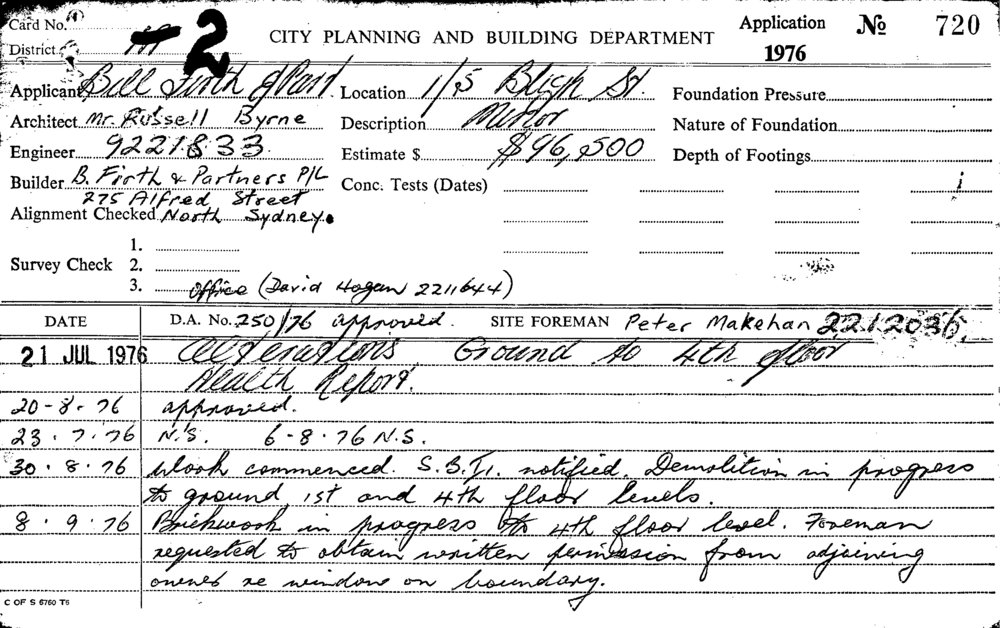 Card No. (A)
District 2
CITY PLANNING AND BUILDING DEPARTMENT
Application No 720
1976
Applicant Bill Firth & Part. Location 1/5 Bligh St. Foundation Pressure
Architect Mr. Russell Byrne Description Minor Nature of Foundation
Engineer 9221833 Estimate $ $96,500 Depth of Footings
Builder B. Firth & Partners P/L Conc. Tests (Dates)
275 Alfred Street
Alignment Checked North Sydney.
1.
Survey Check 2.
3. Office (David Hogan 2211644)
DATE D.A. No. 250/76 approved. SITE FOREMAN Peter Makehan 2212036
21 JUL 1976 Alterations Ground to 4th floor
Health Report.
20-8-76 approved.
23.7.76 N.S. 6-8-76 N.S.
30.8.76 Work commenced. notified. Demolition in progress
to ground, 1st and 4th floor levels.
8.9.76 Brickwork in progress to 4th floor level. Foreman
requested to obtain written permission from adjoining
owner re window on boundary.
C OF S 6760 T5